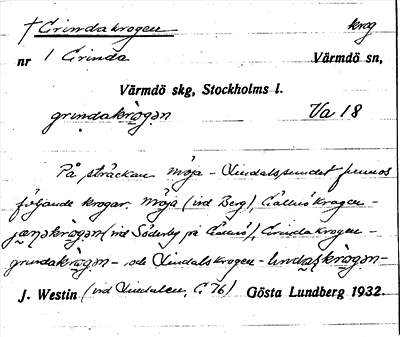 † Grindakrogen krog
nr 1 Grinda Värmdö sn,
Värmdö skg, Stockholms l.
grindakrògən Va 18
På sträckan Möja - Lindalssundet finnes
följande krogar. Möja (vid Berg), Gällnökrogen -
(vid Söderby på Gällnö), Grindakrogen -
grindakrògən - och Lindalskrogen - lindaskrògən -
J. Westin (vid Lindalen, C 76) Gösta Lundberg 1932.